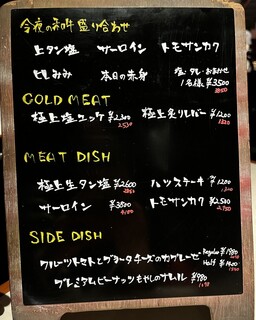 今夜のお肉盛り合わせ
上タン塩 サーロイン トモサンカク
ヒレみみ 本日の赤身 塩・タレ・おまかせ
1名様 ¥3500
3850
COLD MEAT
極上塩ユッケ ¥2300 極上炙りレバー ¥1200
2530 1320
MEAT DISH
極上生タン塩 ¥2600 ハツステーキ ¥1200
2860 1320
サーロイン ¥3800 トモサンカク ¥2500
4180 2750
SIDE DISH
フルーツトマトとブラータチーズのカプレーゼ Regular ¥1980
Half ¥1400
1540
グレミタムピーナッツもやしのナムル ¥980
1078